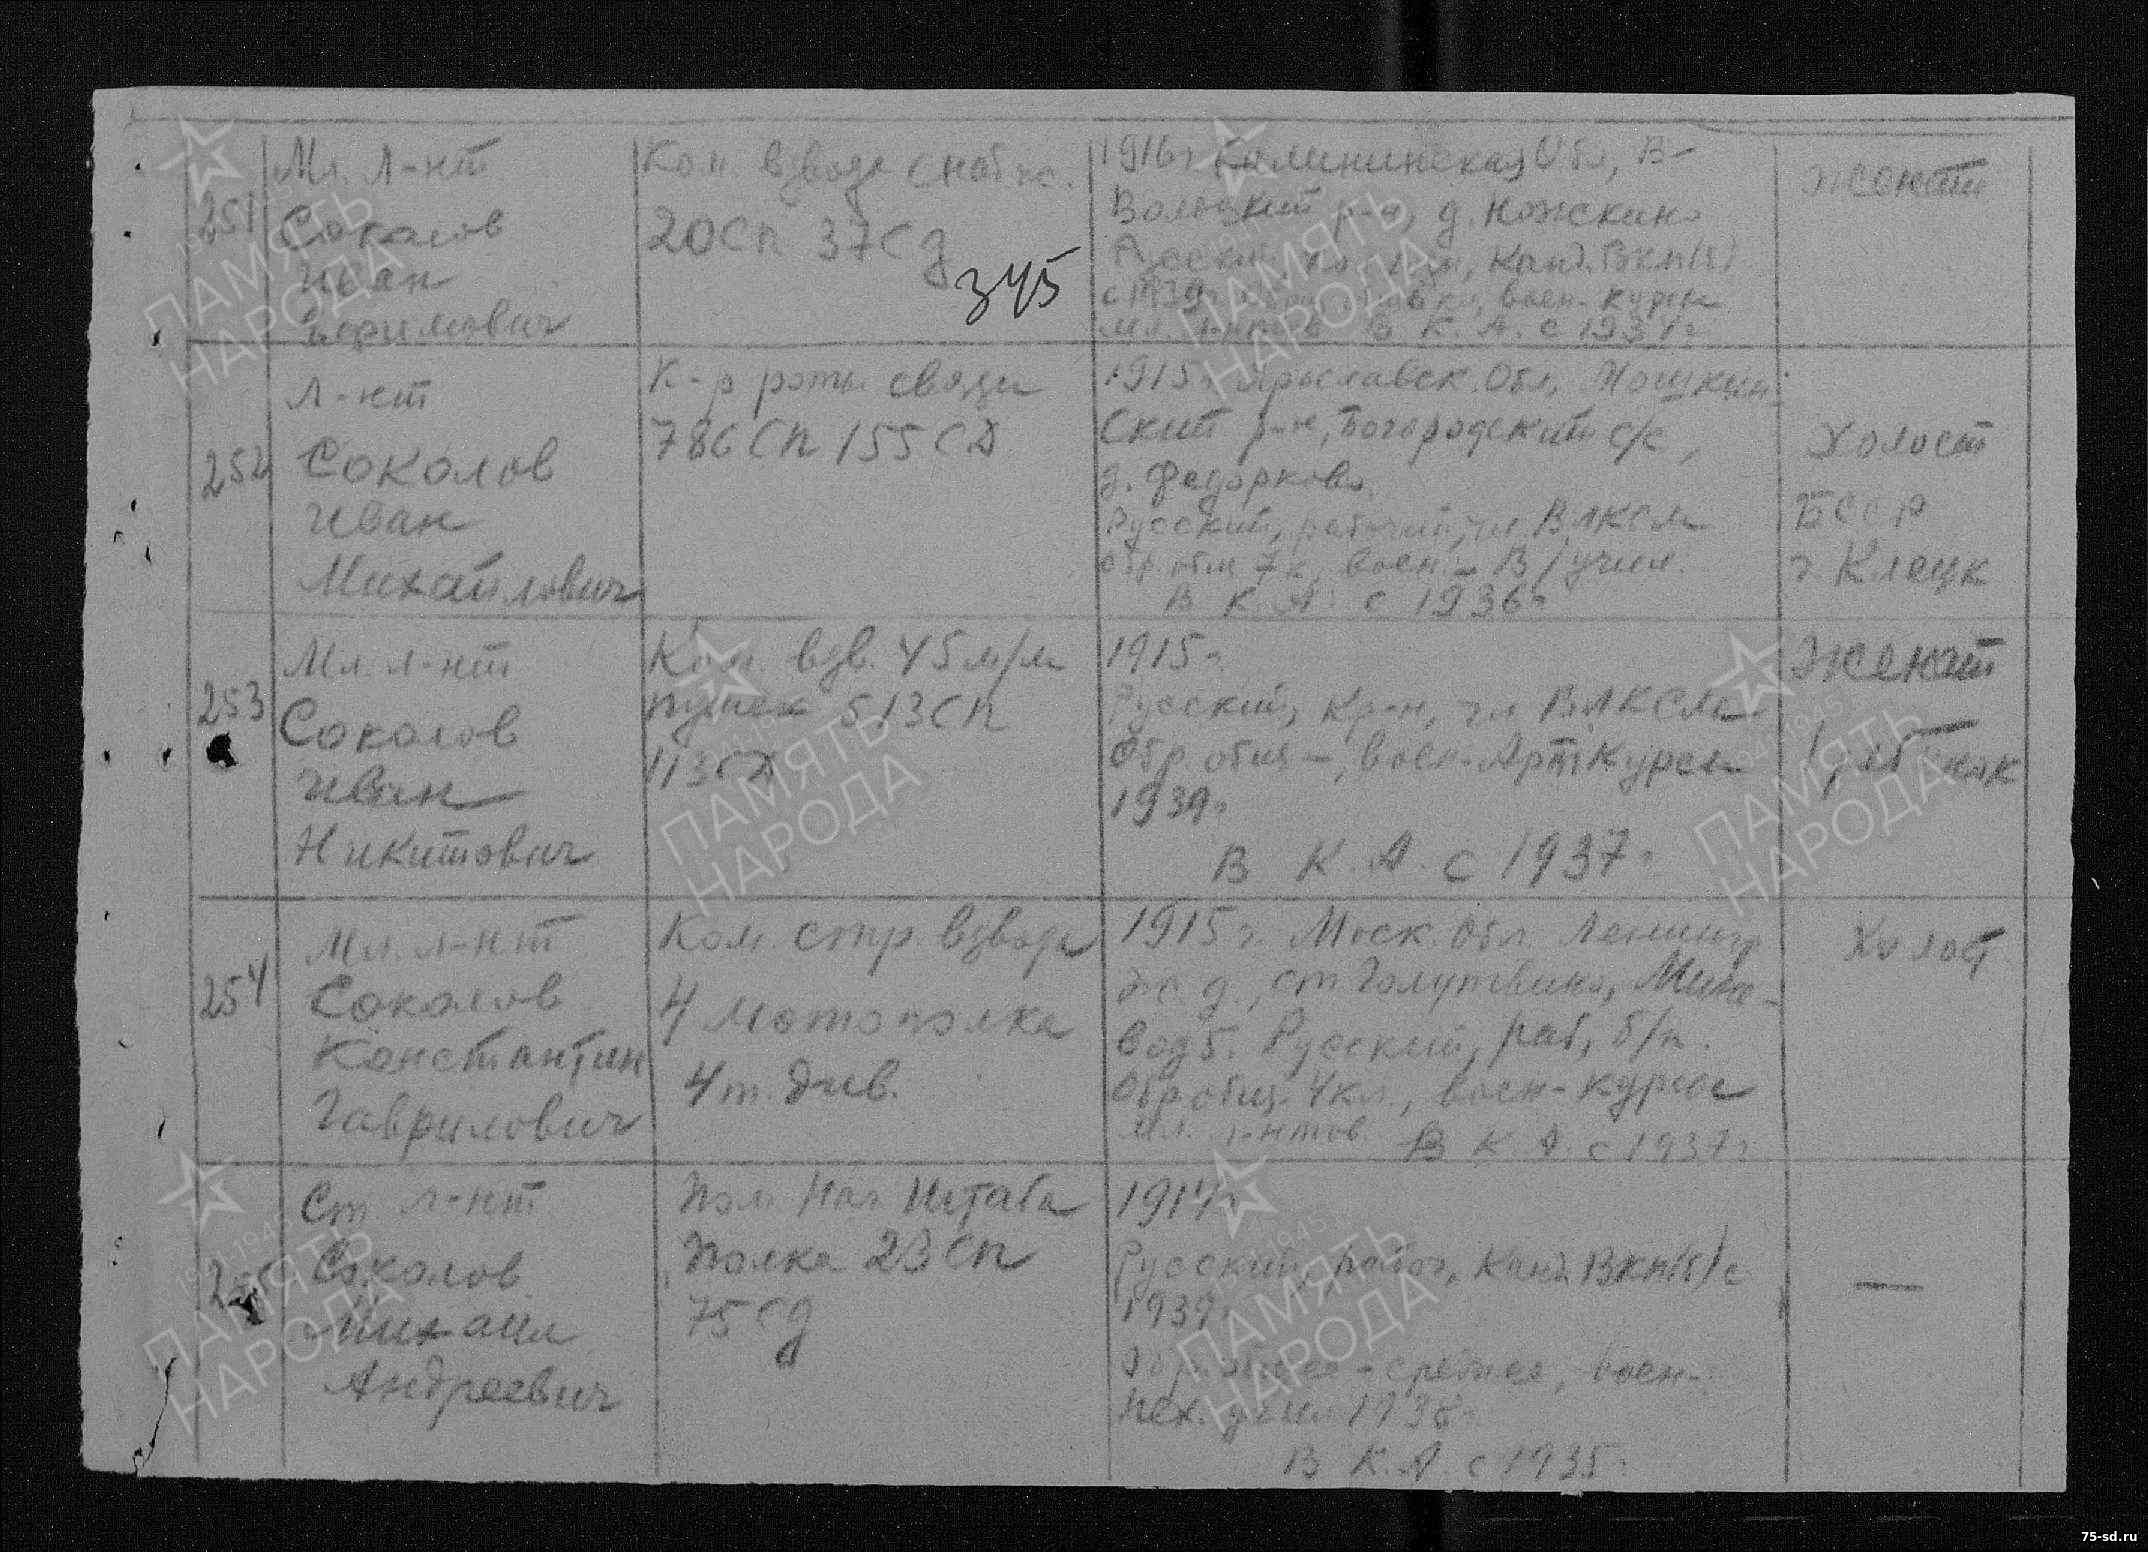 251
Мл. л-нт
Соколов
Иван
Ефимович
Ком взвода снабж.
20 сп 37 сд
345
1916 г Калининская Обл, В-
Волоцкий р-н, д. Ножкино
Русский, Канд. Вкп(б)
с 1939г воен. курсы
мл. л-нтов В К. А. с 193
женат
252
Л-нт
Соколов
Иван
Михайлович
К-р роты связи
786 сп 155 СД
1915 г Ярославск. Обл,
ский р-н, Богородский с/с,
д. Федорково.
Русский, рабочий, чл ВЛКСМ
обр. общ 7 к, воен - В/учил.
В К. А. с 1936г
Холост
БССР
г Клецк
253
Мл. л-нт
Соколов
Иван
Никитович
Ком. взв. 45 м/м
пушек 513 сп
113 СД
1915 г.
Русский, кр-н, чл ВЛКСМ
Обр. общ —, воен. Арт. Курсы
1939г
В К. А. с 1937г
Женат
254
Мл. л-нт
Соколов
Константин
Гаврилович
Ком. стр. взвода
4 мотополка
4 т. див.
1915 г. Моск. Обл. Ленинг
ж.д., ст Голутвино,
Русский, раб, б/п.
Обр общ. 4кл., воен - курсы
мл. л-нтов. В К А. с 193
Холост
255
Ст л-нт
Соколов
Михаил
Андреевич
Пом Нач Штаба
Полка 23 сп
75 сд
1914г
Русский, рабоч, Канд. Вкп(б) с
1939г
Обр. общее - среднее, воен-
пех. учил 1938г
В К. А. с 1935г
—
ПАМЯТЬ
НАРОДА
ПАМЯТЬ
НАРОДА
ПАМЯТЬ
НАРОДА
ПАМЯТЬ
НАРОДА
ПАМЯТЬ
НАРОДА
ПАМЯТЬ
НАРОДА
75-sd.ru